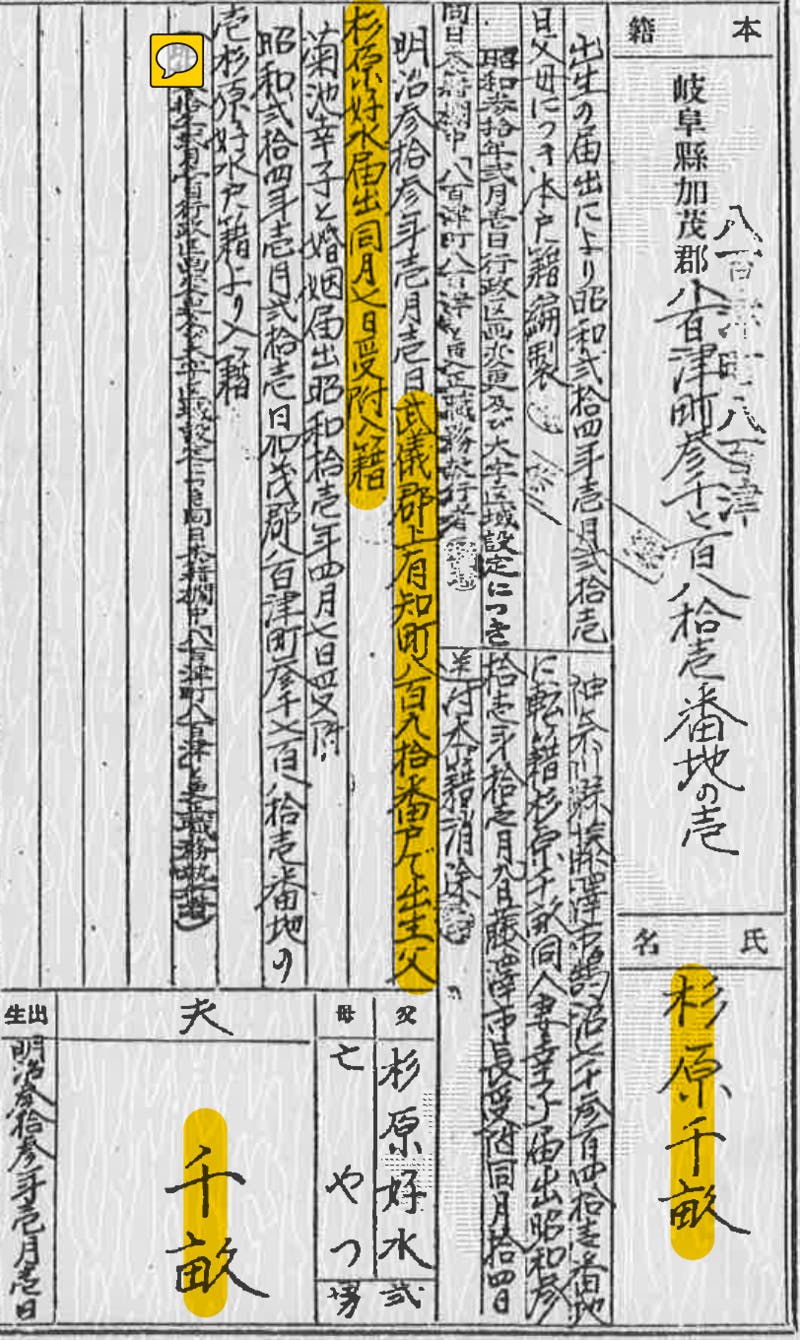 本籍
岐阜縣加茂郡八百津町参千七百八拾壱番地の壱
八百津町八百津
氏名
杉原千畝
出生の届出により昭和弐拾四年壱月弐拾壱
日父母につき本戸籍編製
昭和参拾年弐月壱日行政区画変更及び大字区域設定につき
同日本籍欄中「八百津町八百津」と更正職務執行者
神奈川縣藤澤市鵠沼七千参百四拾壱番地
に転籍杉原千畝同人妻幸子届出昭和参
拾壱年拾壱月九日藤澤市長受附同月拾四日
送付本籍消除
明治参拾参年壱月壱日武儀郡上有知町八百九拾番戸で出生父
杉原好水届出同月七日受附入籍
菊池幸子と婚姻届出昭和拾壱年四月七日受附
昭和弐拾四年壱月弐拾壱日加茂郡八百津町参千七百八拾壱番地の
壱杉原好水戸籍より入籍
同日本籍欄中「八百津町八百津」と更正職務執行者
父
杉原好水
母
亡やつ
弐男
夫
千畝
出生
明治参拾参年壱月壱日